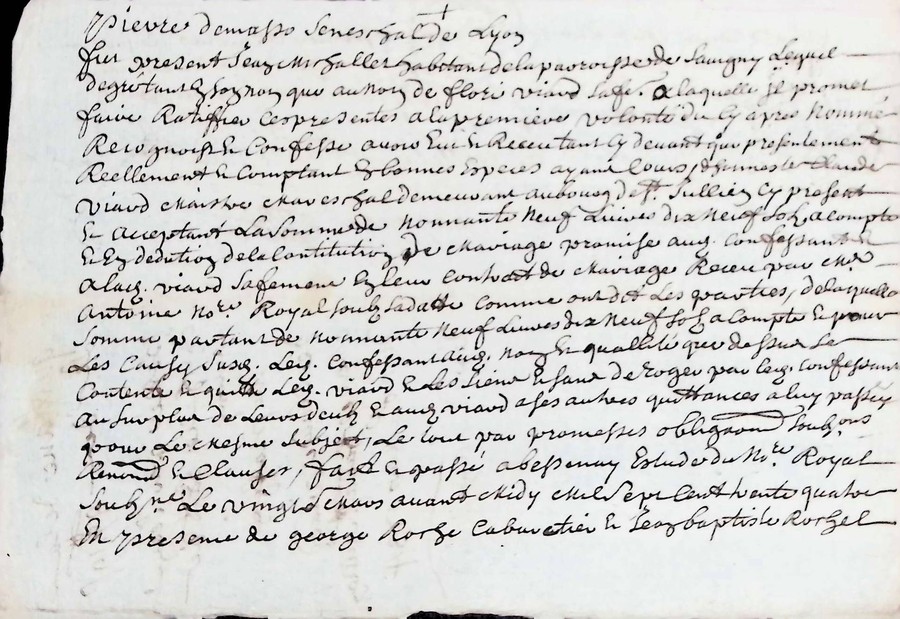 Pierre demasso seneschal de Lyon
fut present Jean Michallet habitant de la parroisse de Savigny Lequel
degré tant en son nom que au nom de flori viard sa fe. a laquelle Jl promet
faire Ratiffier ces presentes a la premiere volonté du cy apres nommé
Recognoist et Confesse avoir Eu et Receu tant cy devant que presentement
Reellement et Comptant En bonnes Especes ayant cours, d' Claude
viard Maistre Mareschal demeurant au bourg de st. Jullien cy present
et acceptant La Somme de nonnante neuf Livres dix neuf solz, a compte
et En dedution de la Constitution de Mariage promise aud. Confessant et
a lad. viard sa femme En leur Contrat de Mariage Receu par Me.
Antoine nore. Royal soubz sa datte comme ont dit Les parties, de laquelle
Somme partant de nonnante neuf Livres dix neuf solz a compte et pour
Les Causes susd. Led. Confessant aud. nom et quallité que dessus se
Contente et quitte Led. viard et Les siens En Jure de roger par led. Confessant
au surplus de Leurs deub et aud. viard a ses autres quittances a luy passez
pour Le mesme subject, Le tout par promesses obligaons soubzons
Renons. et Clauses, faict et passé a bessenay Estude du nore. Royal
soubzne. Le vingt Mars avant Midy Mil Sept Cent trente quatre
En presence de george Roche Cabaretier et Jean baptiste Rochet